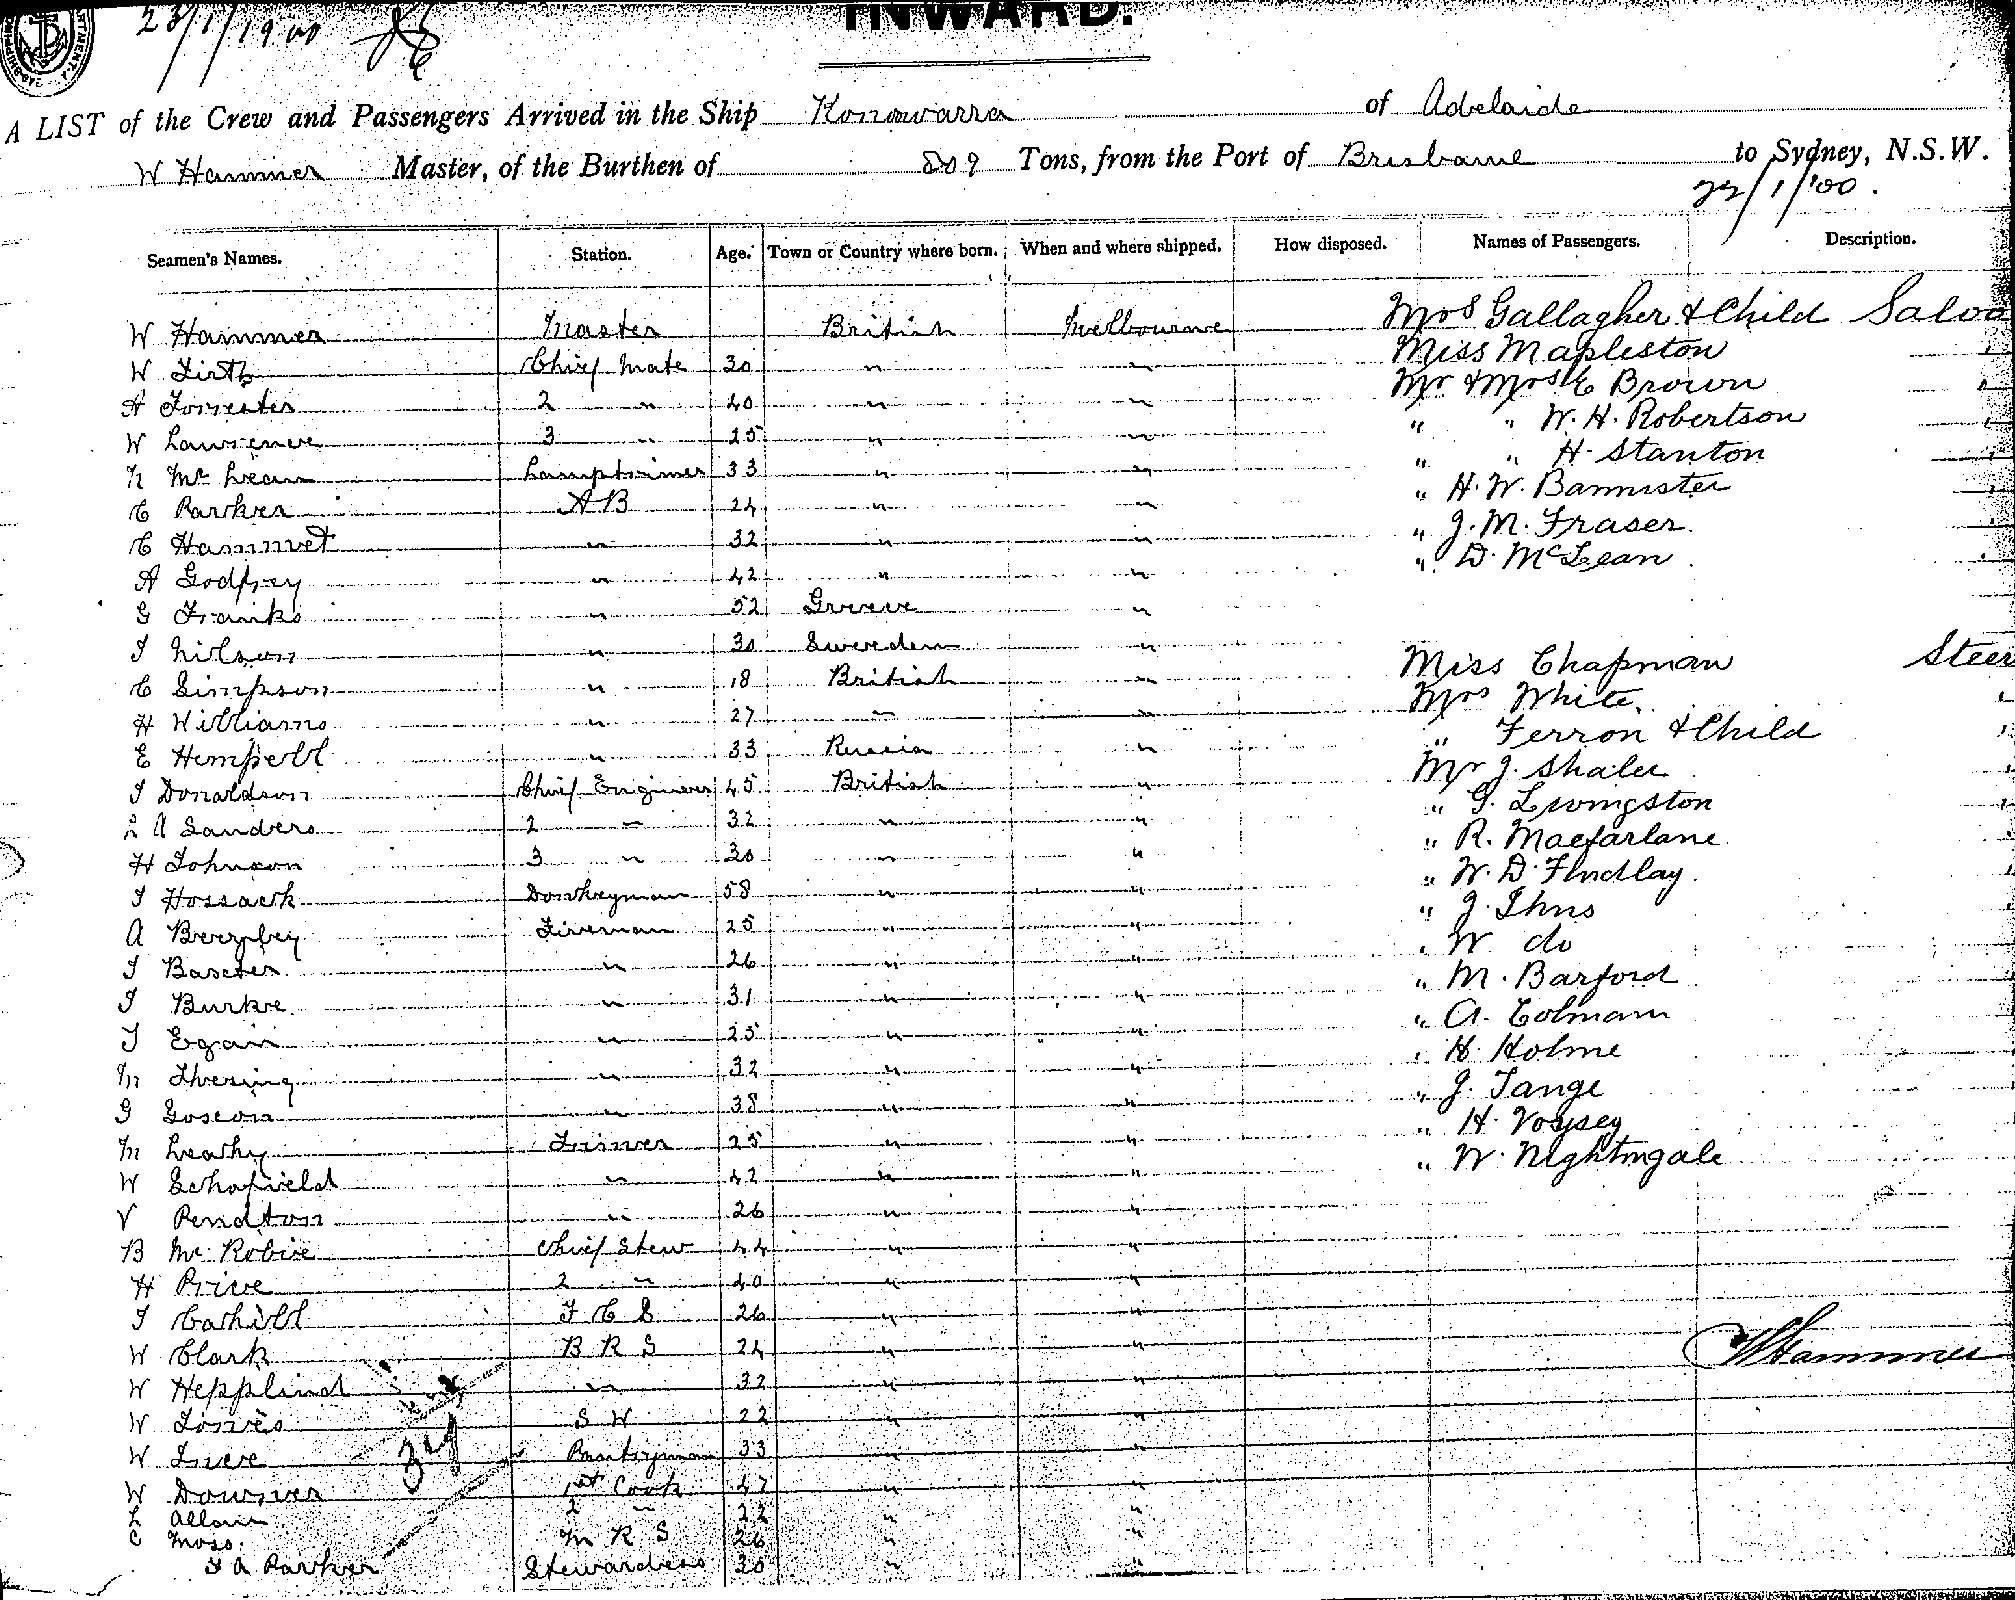 23/1/1900
INWARD.
A LIST of the Crew and Passengers Arrived in the Ship Konoowarra of Adelaide
W Hammer Master, of the Burthen of 809 Tons, from the Port of Brisbane to Sydney, N.S.W.
22/1/'00.
Seamen's Names. Station. Age. Town or Country where born. When and where shipped. How disposed. Names of Passengers. Description.
W Hammer Master British Melbourne Mrs Gallagher & Child Saloo
W Firth Chief Mate 30 " " Miss Mapleston "
A Forrester 2 " 40 " " Mr & Mrs E Brown "
W Lawrence 3 " 25 " " " " W. H. Robertson "
N Mc Lean Lamptrimer 33 " " " " H. Stanton "
C Parker A B 24 " " " H. W. Bannister "
C Hammet " 32 " " " J. M. Fraser. "
A Godfrey " 42 " " " D. McLean "
G Franks " 52 Greece "
J Nilson " 30 Sweden " Miss Chapman Steer
C Simpson " 18 British " Mrs White. "
H Williams " 27 " " " Ferron & Child "
E Hempell " 33 Russia " Mr J. Shalee "
J Donaldson Chief Engineer 45 British " " G. Livingston "
L A Sanders 2 " 32 " " " R. Macfarlane "
H Johnson 3 " 30 " " " W. D. Findlay. "
J Hossack Donkeyman 58 " " " J. Ihns "
A Beezley Fireman 25 " " " W do "
J Baxter " 26 " " " M. Barford "
J Burke " 31 " " " A. Colmam
J Egan " 25 " " " H. Holme
M Thesing " 32 " " " J. Tange
G Goseon " 38 " " " H. Voysey
M Leahy Trimer 25 " " " W. Nightingale
W Schofield " 42 " "
V Pendton " 26 " "
B Mc Robie Chief Stew 44 " "
H Price 2 " 40 " "
J Cahill F C S 26 " "
W Clark B R S 24 " " W Hammer
W Hepplind " 32 " "
W Jones S W 22 " "
W Luce Pantryman 33 " "
W Downer 1st Cook 47 " "
L Allan 2 " 22 " "
C Moss. M R S 26 " "
F A Parker Stewardess 30 " "